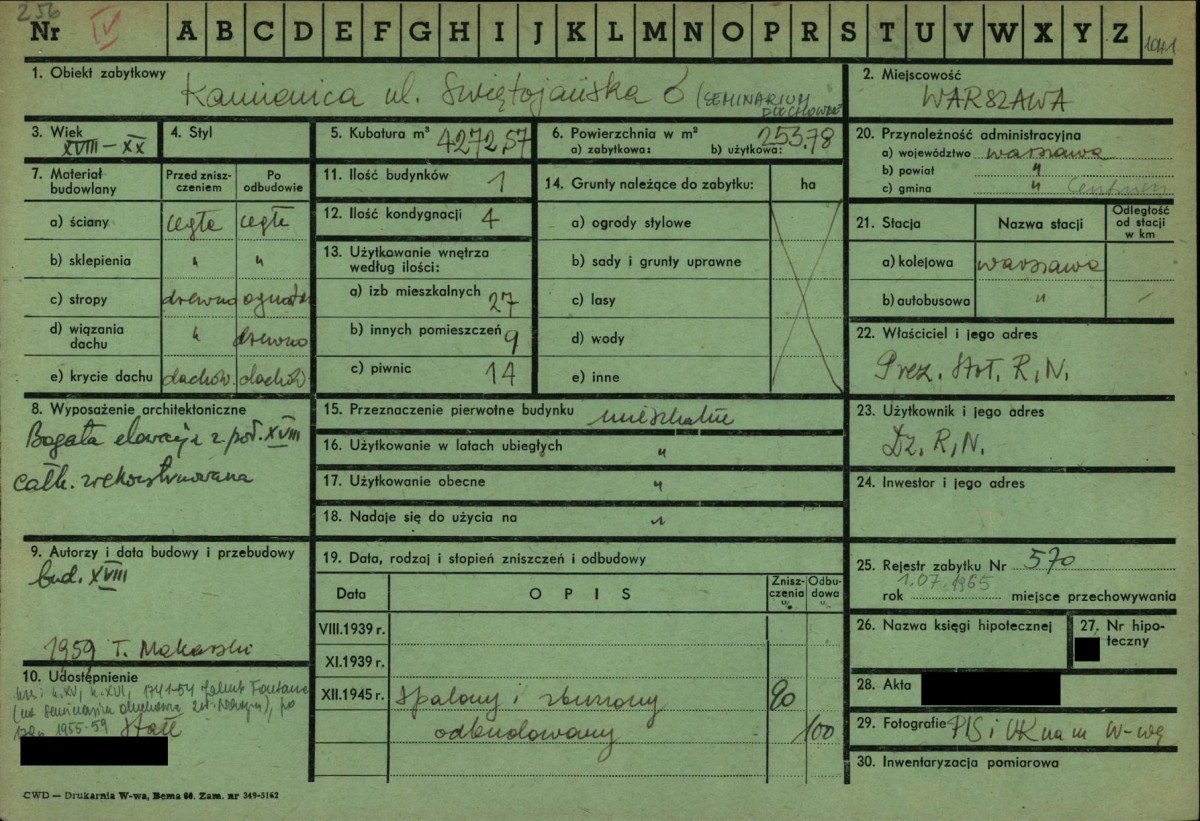 256
Nr IV A B C D E F G H I J K L M N O P R S T U V W X Y Z 1041
1. Obiekt zabytkowy
Kamienica ul. Świętojańska 6 (SEMINARIUM DUCHOWNE)
2. Miejscowość
WARSZAWA
3. Wiek
XVIII – XX
4. Styl
5. Kubatura m³ 4272,57
6. Powierzchnia w m²
a) zabytkowa: b) użytkowa: 253,78
20. Przynależność administracyjna
a) województwo warszawa
b) powiat "
c) gmina " Centrum
7. Materiał budowlany
Przed zniszczeniem
Po odbudowie
a) ściany cegła cegła
b) sklepienia " "
c) stropy drewno ogniotr.
d) wiązania dachu " drewno
e) krycie dachu dachów. dachów.
11. Ilość budynków 1
12. Ilość kondygnacji 4
13. Użytkowanie wnętrza według ilości:
a) izb mieszkalnych 27
b) innych pomieszczeń 9
c) piwnic 14
14. Grunty należące do zabytku: ha
a) ogrody stylowe
b) sady i grunty uprawne
c) lasy
d) wody
e) inne
21. Stacja
Nazwa stacji
Odległość od stacji w km
a) kolejowa warszawa
b) autobusowa " –
22. Właściciel i jego adres
Prez. Stoł. R.N.
23. Użytkownik i jego adres
Dz. R.N.
24. Inwestor i jego adres
8. Wyposażenie architektoniczne
Bogata elewacja z poł. XVIII
całk. zrekonstruowana
15. Przeznaczenie pierwotne budynku mieszkalne
16. Użytkowanie w latach ubiegłych "
17. Użytkowanie obecne "
18. Nadaje się do użycia na "
9. Autorzy i data budowy i przebudowy
bud. XVIII
1959 T. Makarski
19. Data, rodzaj i stopień zniszczeń i odbudowy
Data
OPIS
Zniszczenia %
Odbudowa %
VIII.1939 r.
XI.1939 r.
XII.1945 r. spalony i zburzony 90
odbudowany 100
25. Rejestr zabytku Nr 570
rok 1.07.1965 miejsce przechowywania
26. Nazwa księgi hipotecznej
27. Nr hipoteczny
28. Akta
29. Fotografie PIS i UK na m W-wę
30. Inwentaryzacja pomiarowa
10. Udostępnienie
k. XV, k. XVI, 1741-54 Jakub Fontana
(na seminarium duchowne
1955-59 stałe
CWD — Drukarnia W-wa, Bema 60. Zam. nr 349-5162